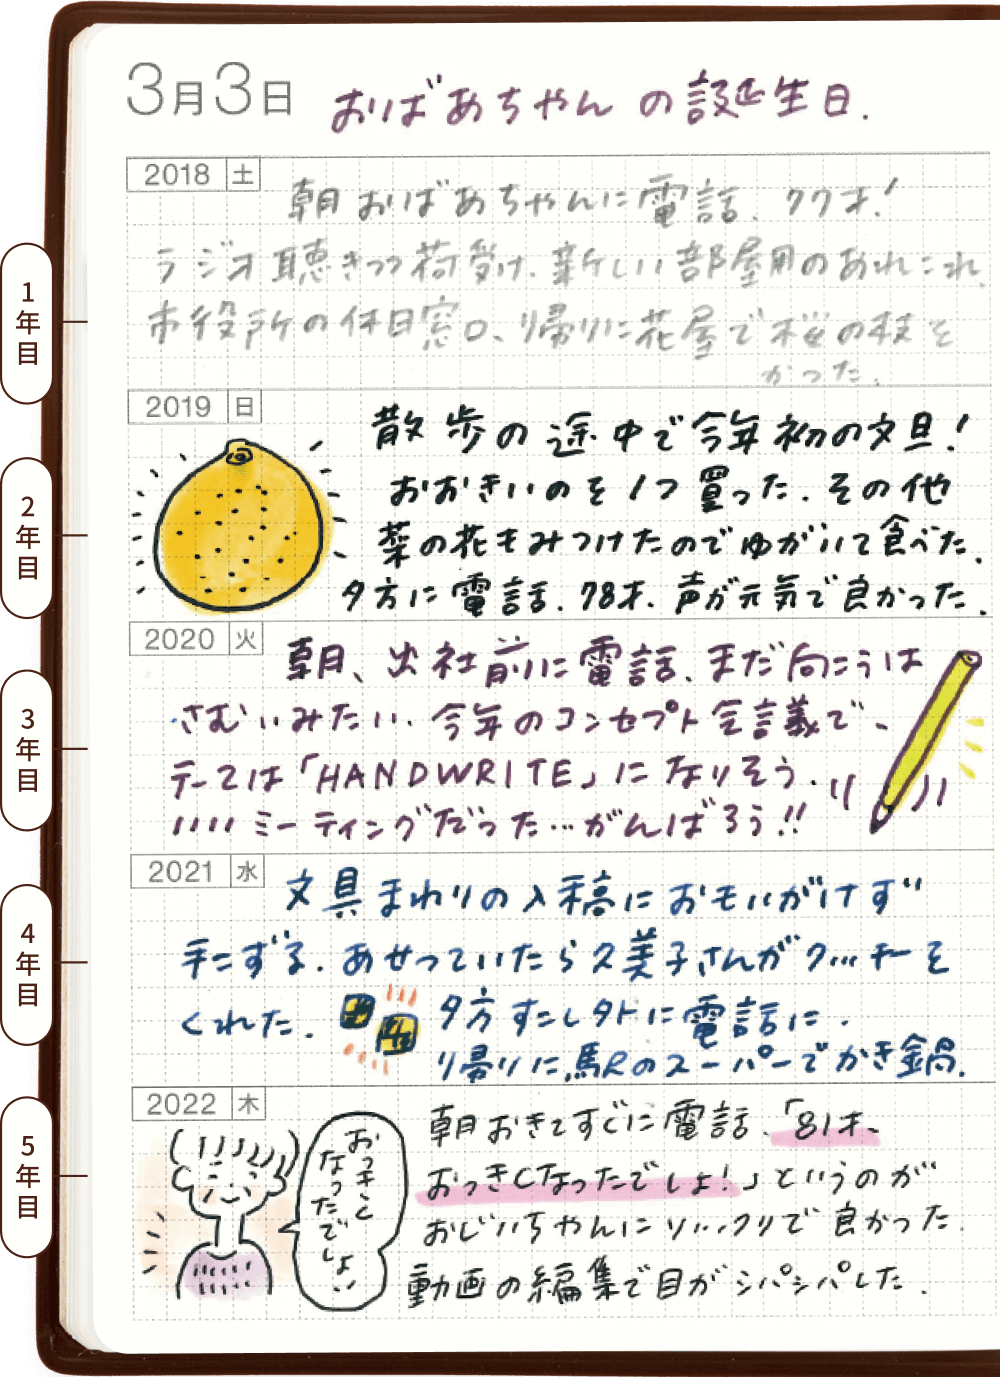 3月3日 おばあちゃんの誕生日.
2018 土
朝おばあちゃんに電話. 77才!
ラジオ聴きつつ荷受け. 新しい部屋用のあれこれ.
市役所の休日窓口、帰りに花屋で桜の枝を
かった.
1年目
2019 日
散歩の途中で今年初の文旦!
おおきいのを1つ買った. その他
菜の花もみつけたのでゆがいて食べた.
夕方に電話. 78才. 声が元気で良かった.
2年目
2020 火
朝、出社前に電話. まだ向こうは
さむいみたい. 今年のコンセプト会議で、
テーマは「HANDWRITE」になりそう.
いいミーティングだった…がんばろう!!
3年目
2021 水
文具まわりの入稿におもいがけず
手こずる. あせっていたら久美子さんがクッキーを
くれた.
夕方すこし外に電話に.
帰りに駅のスーパーでかき鍋.
4年目
2022 木
朝おきてすぐに電話.「81才、
おっきくなったでしょ!」というのが
おじいちゃんにソックリで良かった.
動画の編集で目がシパシパした.
おっきく
なったでしょ!
5年目